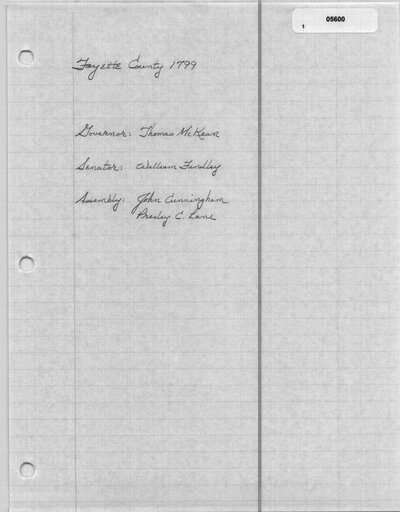 05600
Fayette County 1799
Governor: Thomas McKean
Senator: William Findley
Assembly: John Cunningham
Presley C. Lane